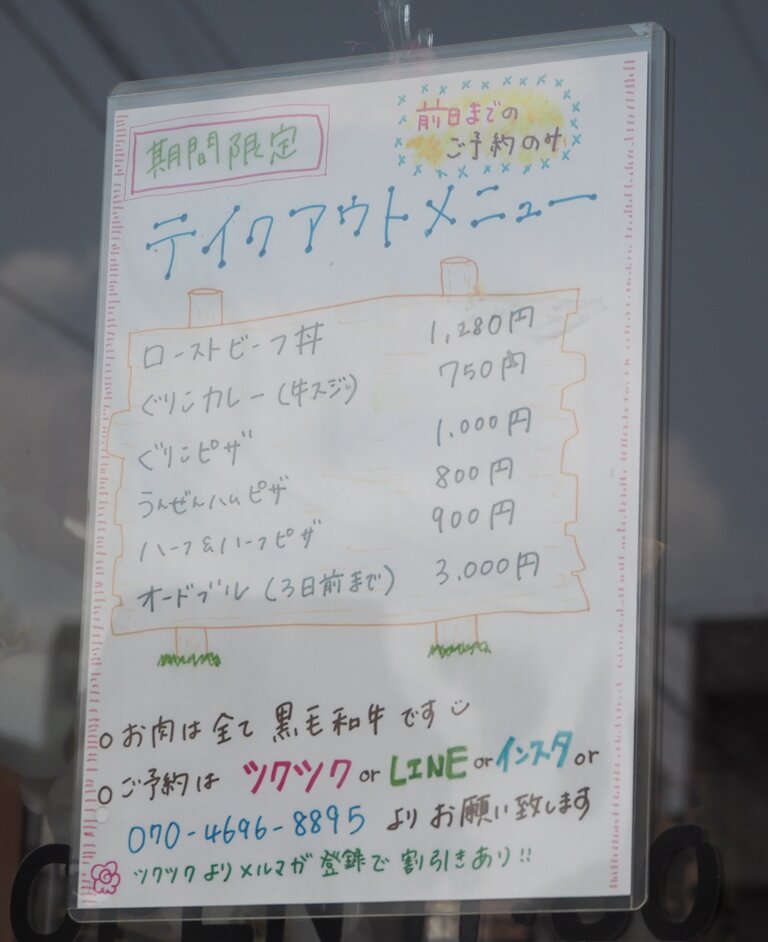 期間限定
前日までの
ご予約のみ
テイクアウトメニュー
ローストビーフ丼 1,280円
ぐりこカレー(牛スジ) 750円
ぐりこピザ 1,000円
うんぜんハムピザ 800円
ハーフ&ハーフピザ 900円
オードブル(3日前まで) 3,000円
お肉は全て 黒毛和牛です
ご予約は ツクツク or LINE or インスタ or
070-4696-8895 よりお願い致します
ツクツクよりメルマガ登録で割引きあり!!
OPEN